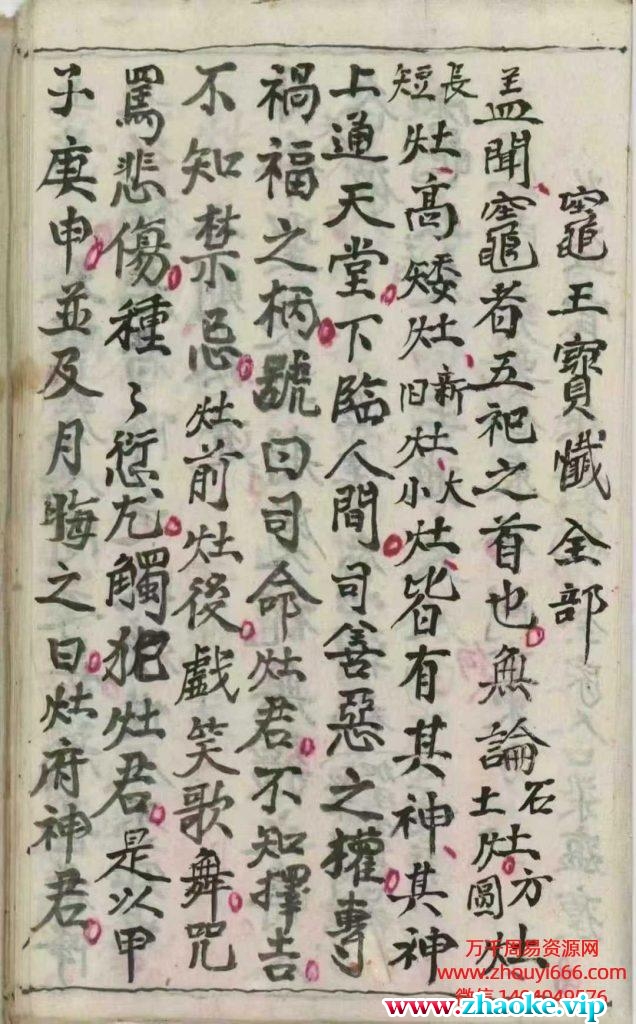 竈王寶懺全部
盖聞竈者五祀之首也無論石土灶方圓灶
長短灶高矮灶新旧灶大小灶皆有其神其神
上通天堂下臨人間司善惡之權專
禍福之柄號曰司命灶君不知擇吉
不知禁忌灶前灶後戲笑歌舞咒
罵悲傷種々愆尤觸犯灶君是以甲
子庚申並及月晦之日灶府神君
万千周易资源网
www.zhouyi666.com
www.zhaoke.vip